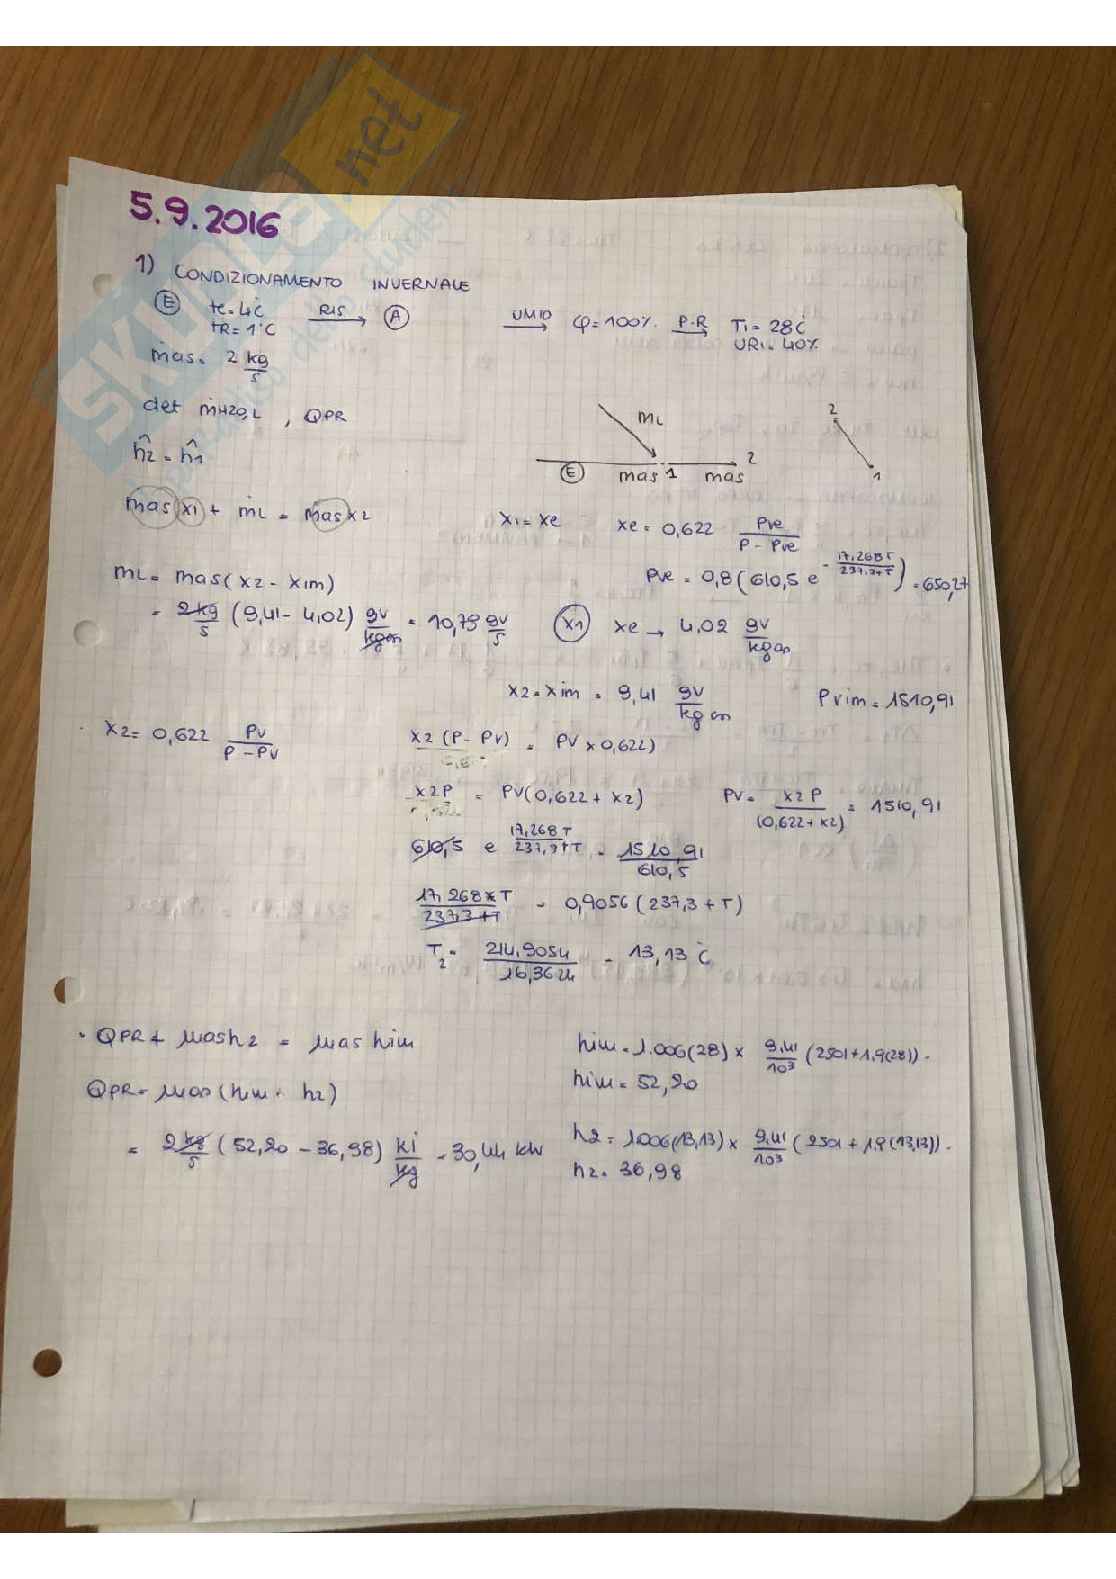 5.9.2016
1) CONDIZIONAMENTO INVERNALE
(E) te=4°C RIS → (A) UMID → φ=100% P-R → Ti=28°C
tR=1°C URi=40%
ṁas= 2 kg/s
det ṁH2O,L , QPR
ĥ2 = ĥ1
ML
(E) mas 1 mas 2
2
1
ṁas x1 + ṁL = ṁas x2
x1=xe xe= 0,622 Pve/(P-Pve)
Pve = 0,8(610,5 e^(17,268T/(237,3+T)))=650,27
mL= mas(x2-xim)
= 2kg/s (9,41-4,02) gv/kgas = 10,79 gv/s
(x1) xe → 4,02 gv/kgas
x2=xim= 9,41 gv/kgas Pvim=1510,91
· x2= 0,622 Pv/(P-Pv)
x2(P-Pv) = Pv x0,622)
x2P = Pv(0,622+x2) Pv= x2P/(0,622+x2) = 1510,91
610,5 e^(17,268T/(237,3+T)) = 1510,91/610,5
17,268xT/(237,3+T) = 0,9056(237,3+T)
T2= 214,9054/16,3624 = 13,13°C
· QPR + mash2 = mas him
him=1.006(28)x 9,41/10³ (2501+1,9(28)).
him= 52,20
QPR= mas(him- h2)
= 2kg/s (52,20-36,98) kj/kg = 30,44 kW
h2= 1.006(13,13)x 9,41/10³ (2501+1,9(13,13)).
h2= 36,98
skuola.net